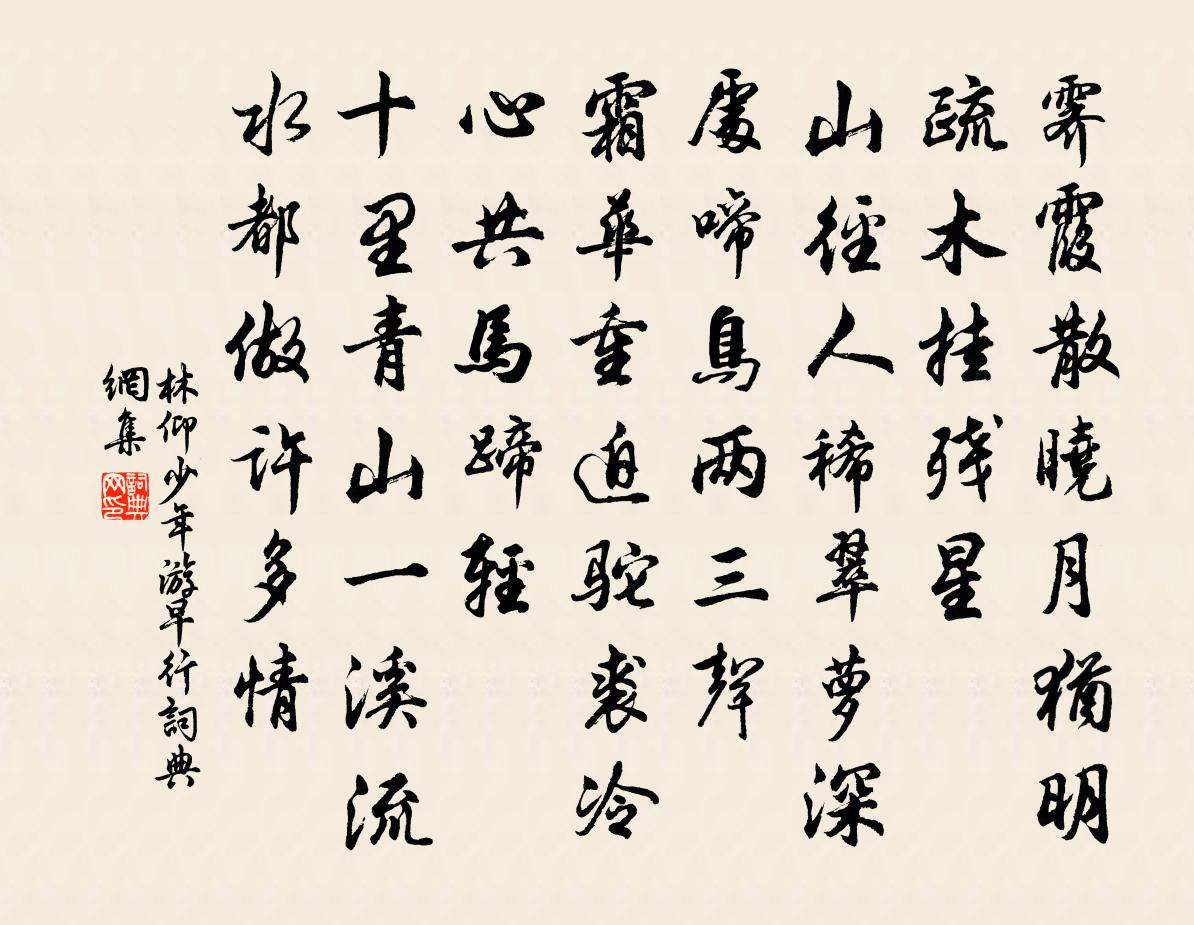 霽霞散曉月猶明
疏木挂残星
山徑人稀翠蘿深
處啼鳥两三聲
霜華重迫駝裘冷
心共馬蹄輕
十里青山一溪流
水都做許多情
林仰少年游早行詞典
網集
詞典
网印